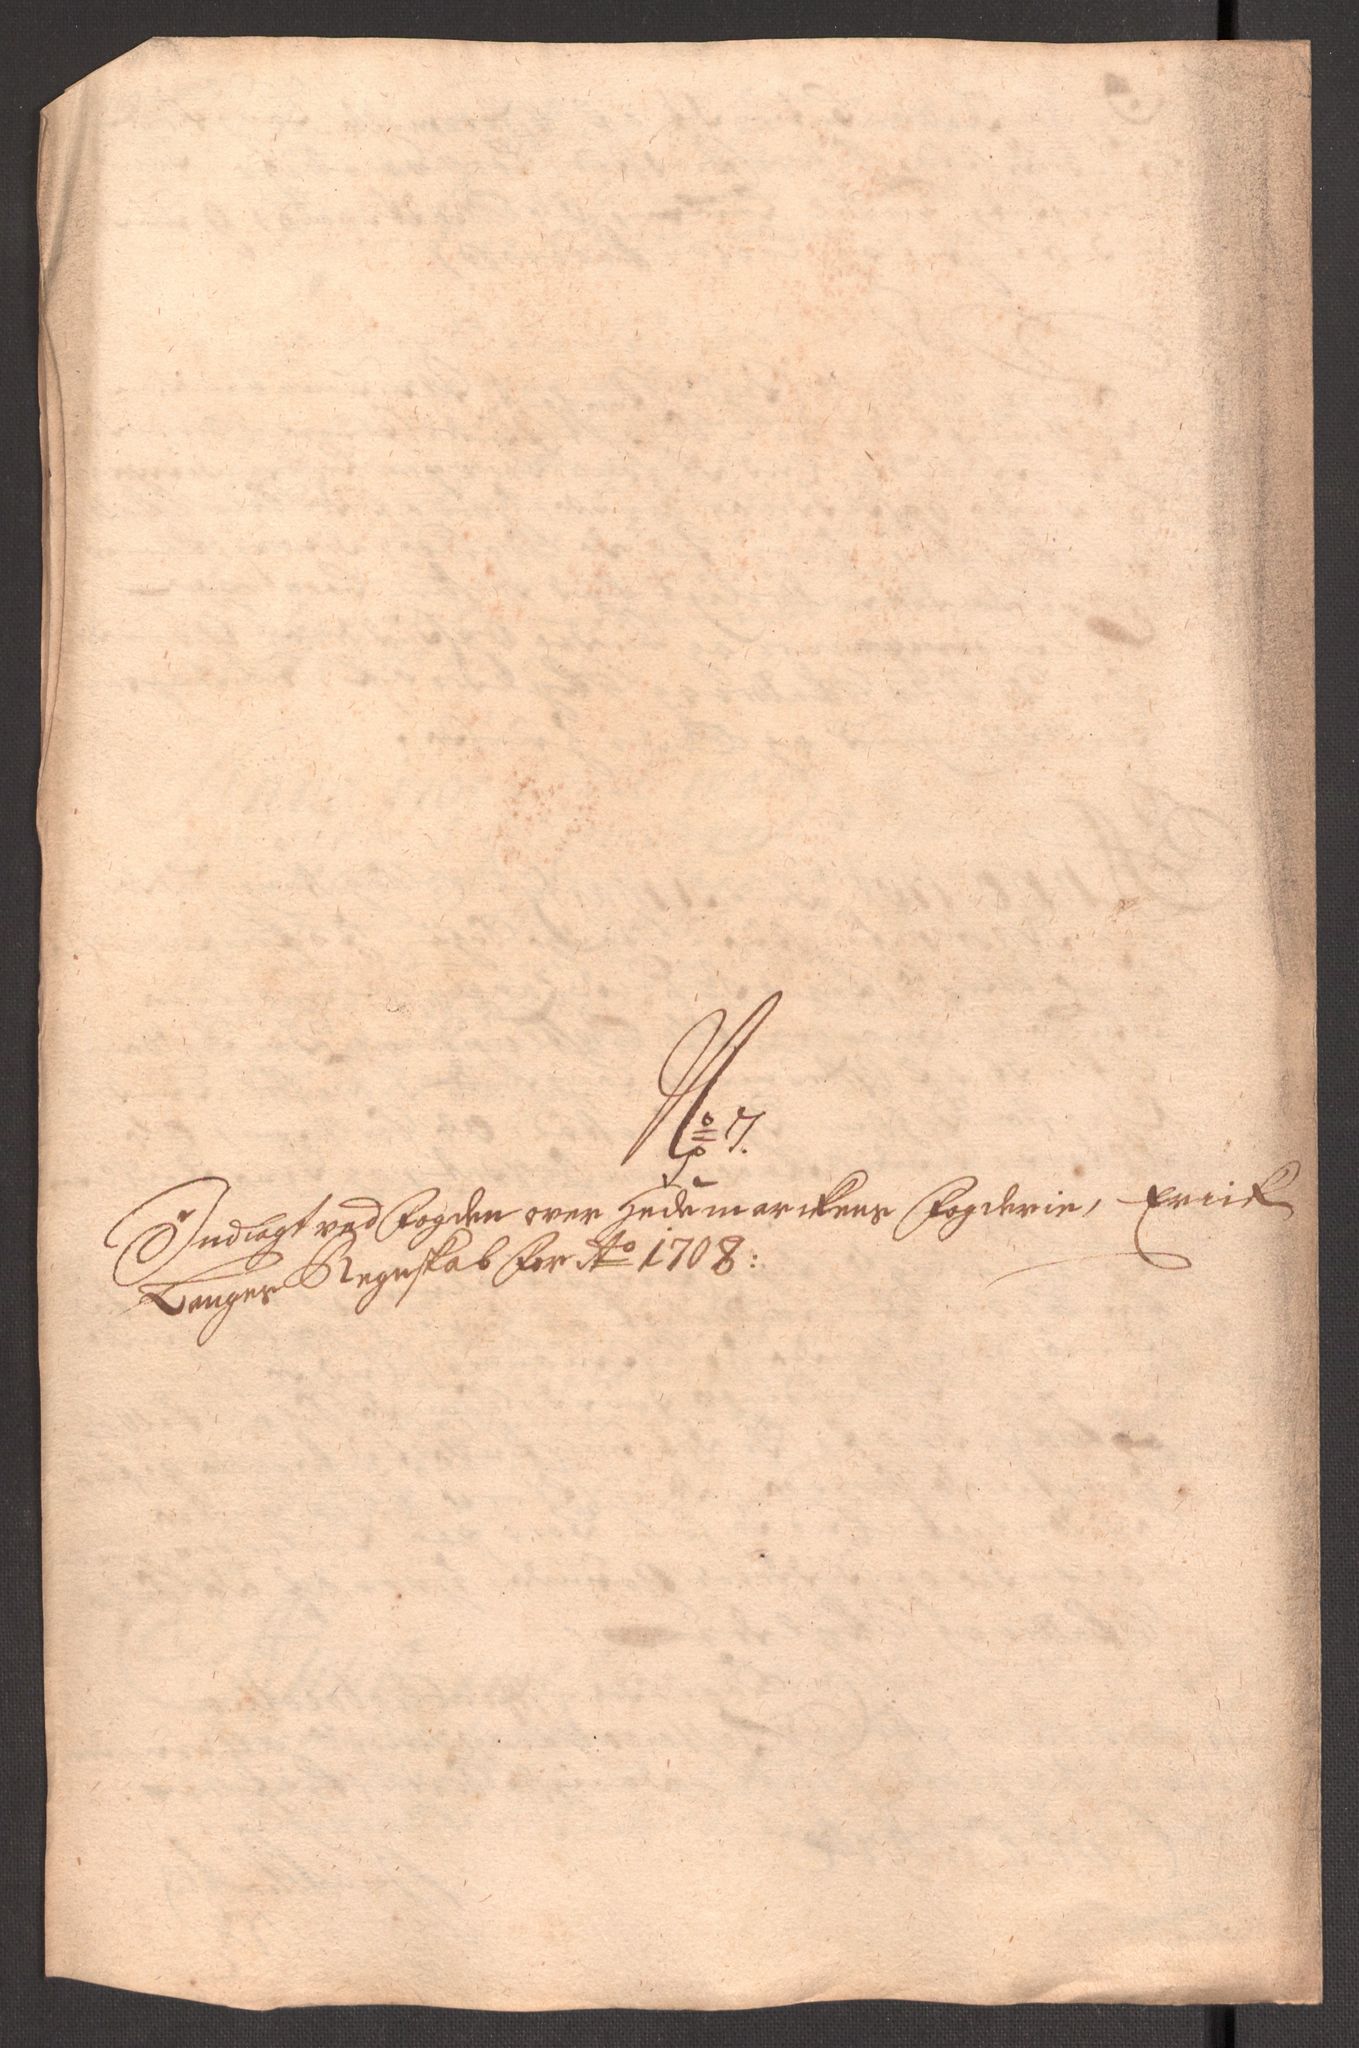 No 7.
Indlagt ved Fogden over Hedemarckens Fogderie, Erick
Langes Regnskab for Ao 1708: